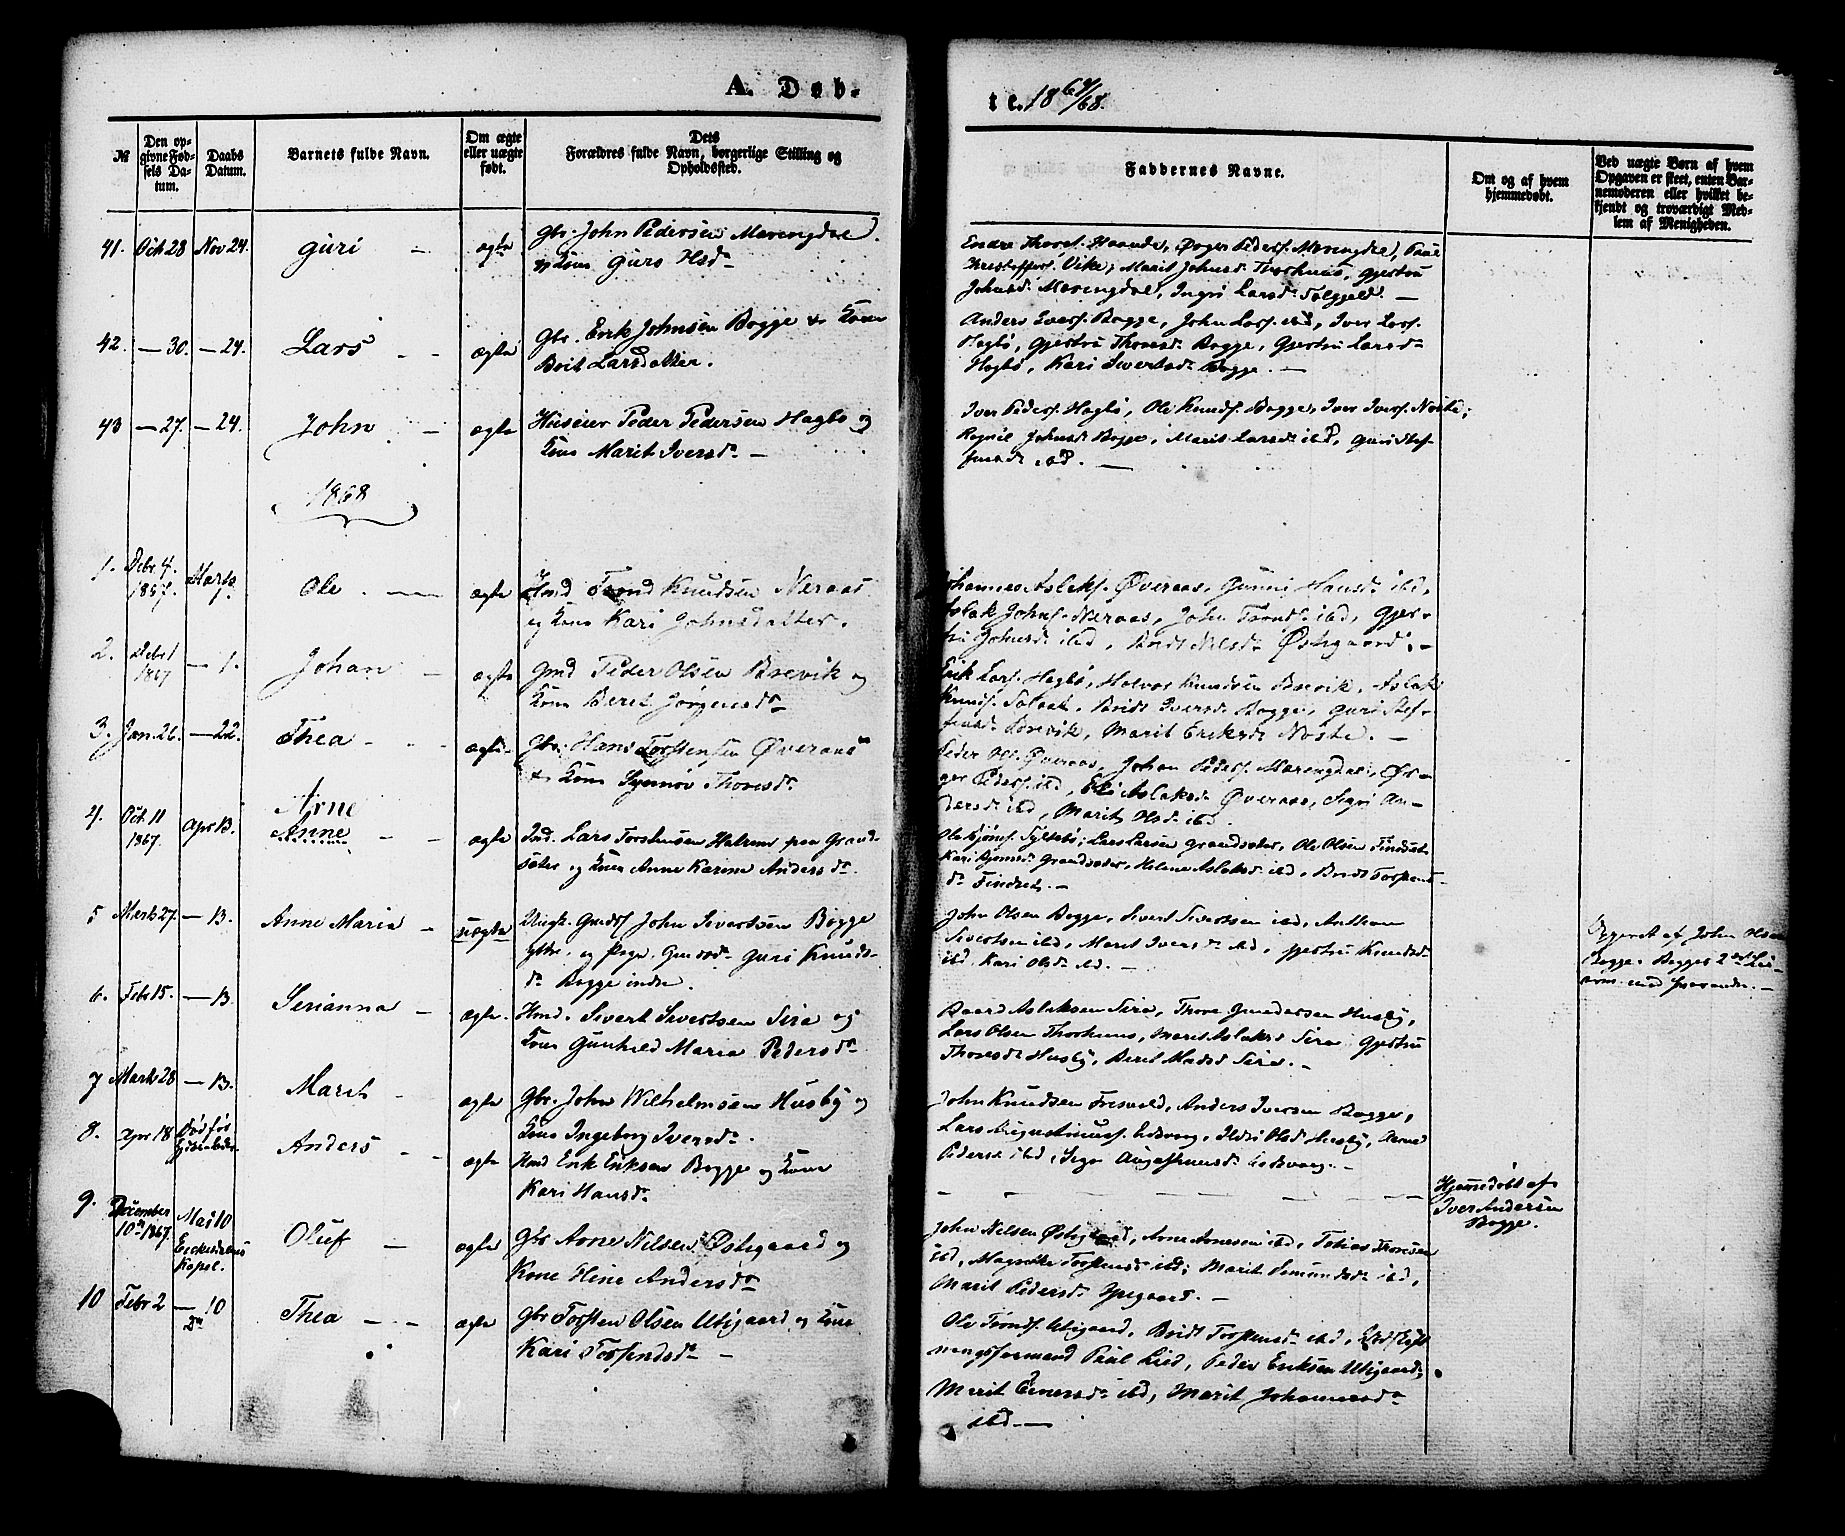 A. Døb-
te. 18 67/68.
№
Den opgivne Fødsels Datum.
Daabs Datum.
Barnets fulde Navn.
Om ægte eller uægte født.
Dets Forældres fulde Navn, borgerlige Stilling og Opholdssted.
Faddernes Navne.
Om og af hvem hjemmedøbt.
Ved uægte Børn af hvem Opgaven er skeet, enten Barnemoderen eller hvilket bekjendt og troværdigt Medlem af Menigheden.
41. Oct 28 Nov 24. Guri — ægte
Gbr. John Pedersen Merengdal
og Kone Guro Olsd.
Endre Thores. Haande, Øoger Peders. Merengdal, Paul
Christoffers. Vike, Marit Johnsd. Torhuus, Gjertru
Johnsd. Merengdal, Ingri Larsd. Tolgjeld. —
42. — 30. — 24. Lars — ægte
Gbr. Erik Johnsen Bogge & Kone
Brit Larsdatter.
Anders Ivers. Bogge, John Lars. ibd, Iver Lars.
Hagbø, Gjertru Thoresd. Bogge, Gjertru Larsd.
Hagbø, Kari Sivertsd. Bogge. —
43 — 27. — 24. John — ægte
Huseier Peder Pedersen Hagbø og
Kone Marit Iversd. —
Iver Peders. Hagbø, Ole Knuds. Bogge, Iver Ivers. Noste,
Ragnil Johnsd. Bogge, Marit Larsd. ibd, Guri Stef-
fensd. ibd. —
1868
1. Debr. 4. 1867. Marts 1. Ole — ægte
Hmd Trond Knudsen Neraas
og Kone Kari Johnsdatter.
Johannes Aslaks. Øveraas, Gunni Hansd. ibd,
Aslak Johns. Neraas, John Tronds. ibd, Gjer-
tru Johnsd. ibd, Brit Nilsd. Østigaard. —
2. Debr 1 1867 — 1. Johan — ægte
Gmd Peder Olsen Brevik og
Kone Beret Jørgensd.
Erik Lars. Hagbø, Halvor Knudsen Brevik, Aslak
Knuds. Tolaas, Brit Iversd. Bogge, Guri Stef-
fensd. Brevik, Marit Eriksd. Noste. —
3. Jan. 26. — 22. Thea — ægte
Gbr. Hans Torstensen Øveraas
& Kone Synnøv Thoresd.
Peder Ols. Øveraas, Johan Peders. Merengdal, Øo-
ger Peders. ibd, Eli Aslaksd. Øveraas, Sigri An-
dersd. ibd, Marit Olsd. ibd.
4. Oct. 11 1867. Apr 13. Arne
Anne — ægte
Ind. Lars Torstensen Halrem paa Grand-
sæter og Kone Anne Karine Andersd.
Lars Larsen Grandsæter, Ole Olsen Tindset
Kari Grandsæter, Helene Aslaksd. ibd, Brit Torstens-
d. Tindset. —
5 Marts 27. — 13. Anne Maria — uægte
Ungk. Gmds. John Sivertsen Bogge
ytre, og Pige Gmdsd. Guri Knuds-
d. Bogge indre.
John Olsen Bogge, Sivert Sivertsen ibd, Anthon
Sivertsen ibd, Marit Iversd. ibd, Gjertru Knudsd.
ibd. Kari Olsd. ibd. —
Opgivet af John Olsen
Bogge. Begges 2det Lei-
ermaal forøvrigt. —
6. Febr 15. — 13. Serianna — ægte.
Hmd. Sivert Sivertsen Sira og
Kone Gunhild Maria Pedersd.
Baard Aslaksen Sira, Thore Gundersen Husby,
Lars Olsen Thorhuus, Marit Aslaksd. Sira, Gjertru
Thoresd. Husby, Beret Madsd. Sira. —
7 Marts 28 — 13. Marit — ægte
Gbr. John Wilhelmsen Husby og
Kone Ingeborg Iversd.
John Knudsen Fresvold, Anders Iversen Bogge,
Lars Augustinuss. Ildri Olsd. Husby,
Pedersd. ibd,
8. Apr 18 Død før
Anders — ægte
Hmd Erik Eriksen Bogge og Kone
Kari Hansd.
Hjemmedøbt af
Iver Andersen
Bogge.
9. December 10de 1867. Mai 10 Eirikisdalens Kapel. Oluf — ægte
Gbr Arne Nilsen Østigaard og
Kone Stine Andersd.
John Nilsen Østigaard, Arne Arnesen ibd, Tobias Tronsen
ibd, Magnhild Torstensd. ibd; Marit Simundsd. ibd,
Marit Pedersd. —
10 Febr 2 — Dn 10 Thea — ægte
Gbr Torsten Olsen Utigaard og Kone
Kari Torstensd. —
Ole Tronds. Utigaard, Brit Torstensd. ibd,
ningsformand Paul Lied, Peder Eriksen Utigaard,
Marit Einersd. ibd, Marit Johannesd.
ibd. —